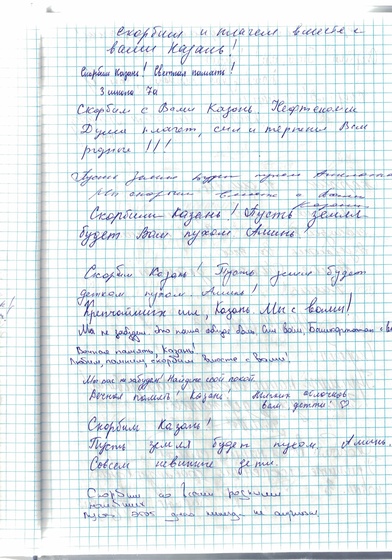 Скорбим и плачем вместе с
вами Казань!
Скорбим Казань! Светлая память!
3 школа 7а
Скорбим с Вами Казань. Нефтекамск
Душа плачет, сил и терпения Вам
родные!!!
Пусть земля будет пухом
Мы скорбим вместе с вами
Казань
Скорбим Казань! Пусть земля
будет Вам пухом Аминь!
Скорбим Казань! Пусть земля будет
деткам пухом. Аминь!
Крепчайших сил, Казань. Мы с вами!
Мы не забудем это наша общая боль. Сил Вам, Башкортостан с
Вечная память, Казань!
Любим, помним, скорбим вместе с вами!
Мы вас не забудем! Найдите свой покой.
Вечная память! Казань. Мягких облачков
вам, детки! ♡
Скорбим Казань!
Пусть земля будет пухом. Аминь.
Совсем невинные дети.
Скорбим со всеми
Пусть этот день никогда не